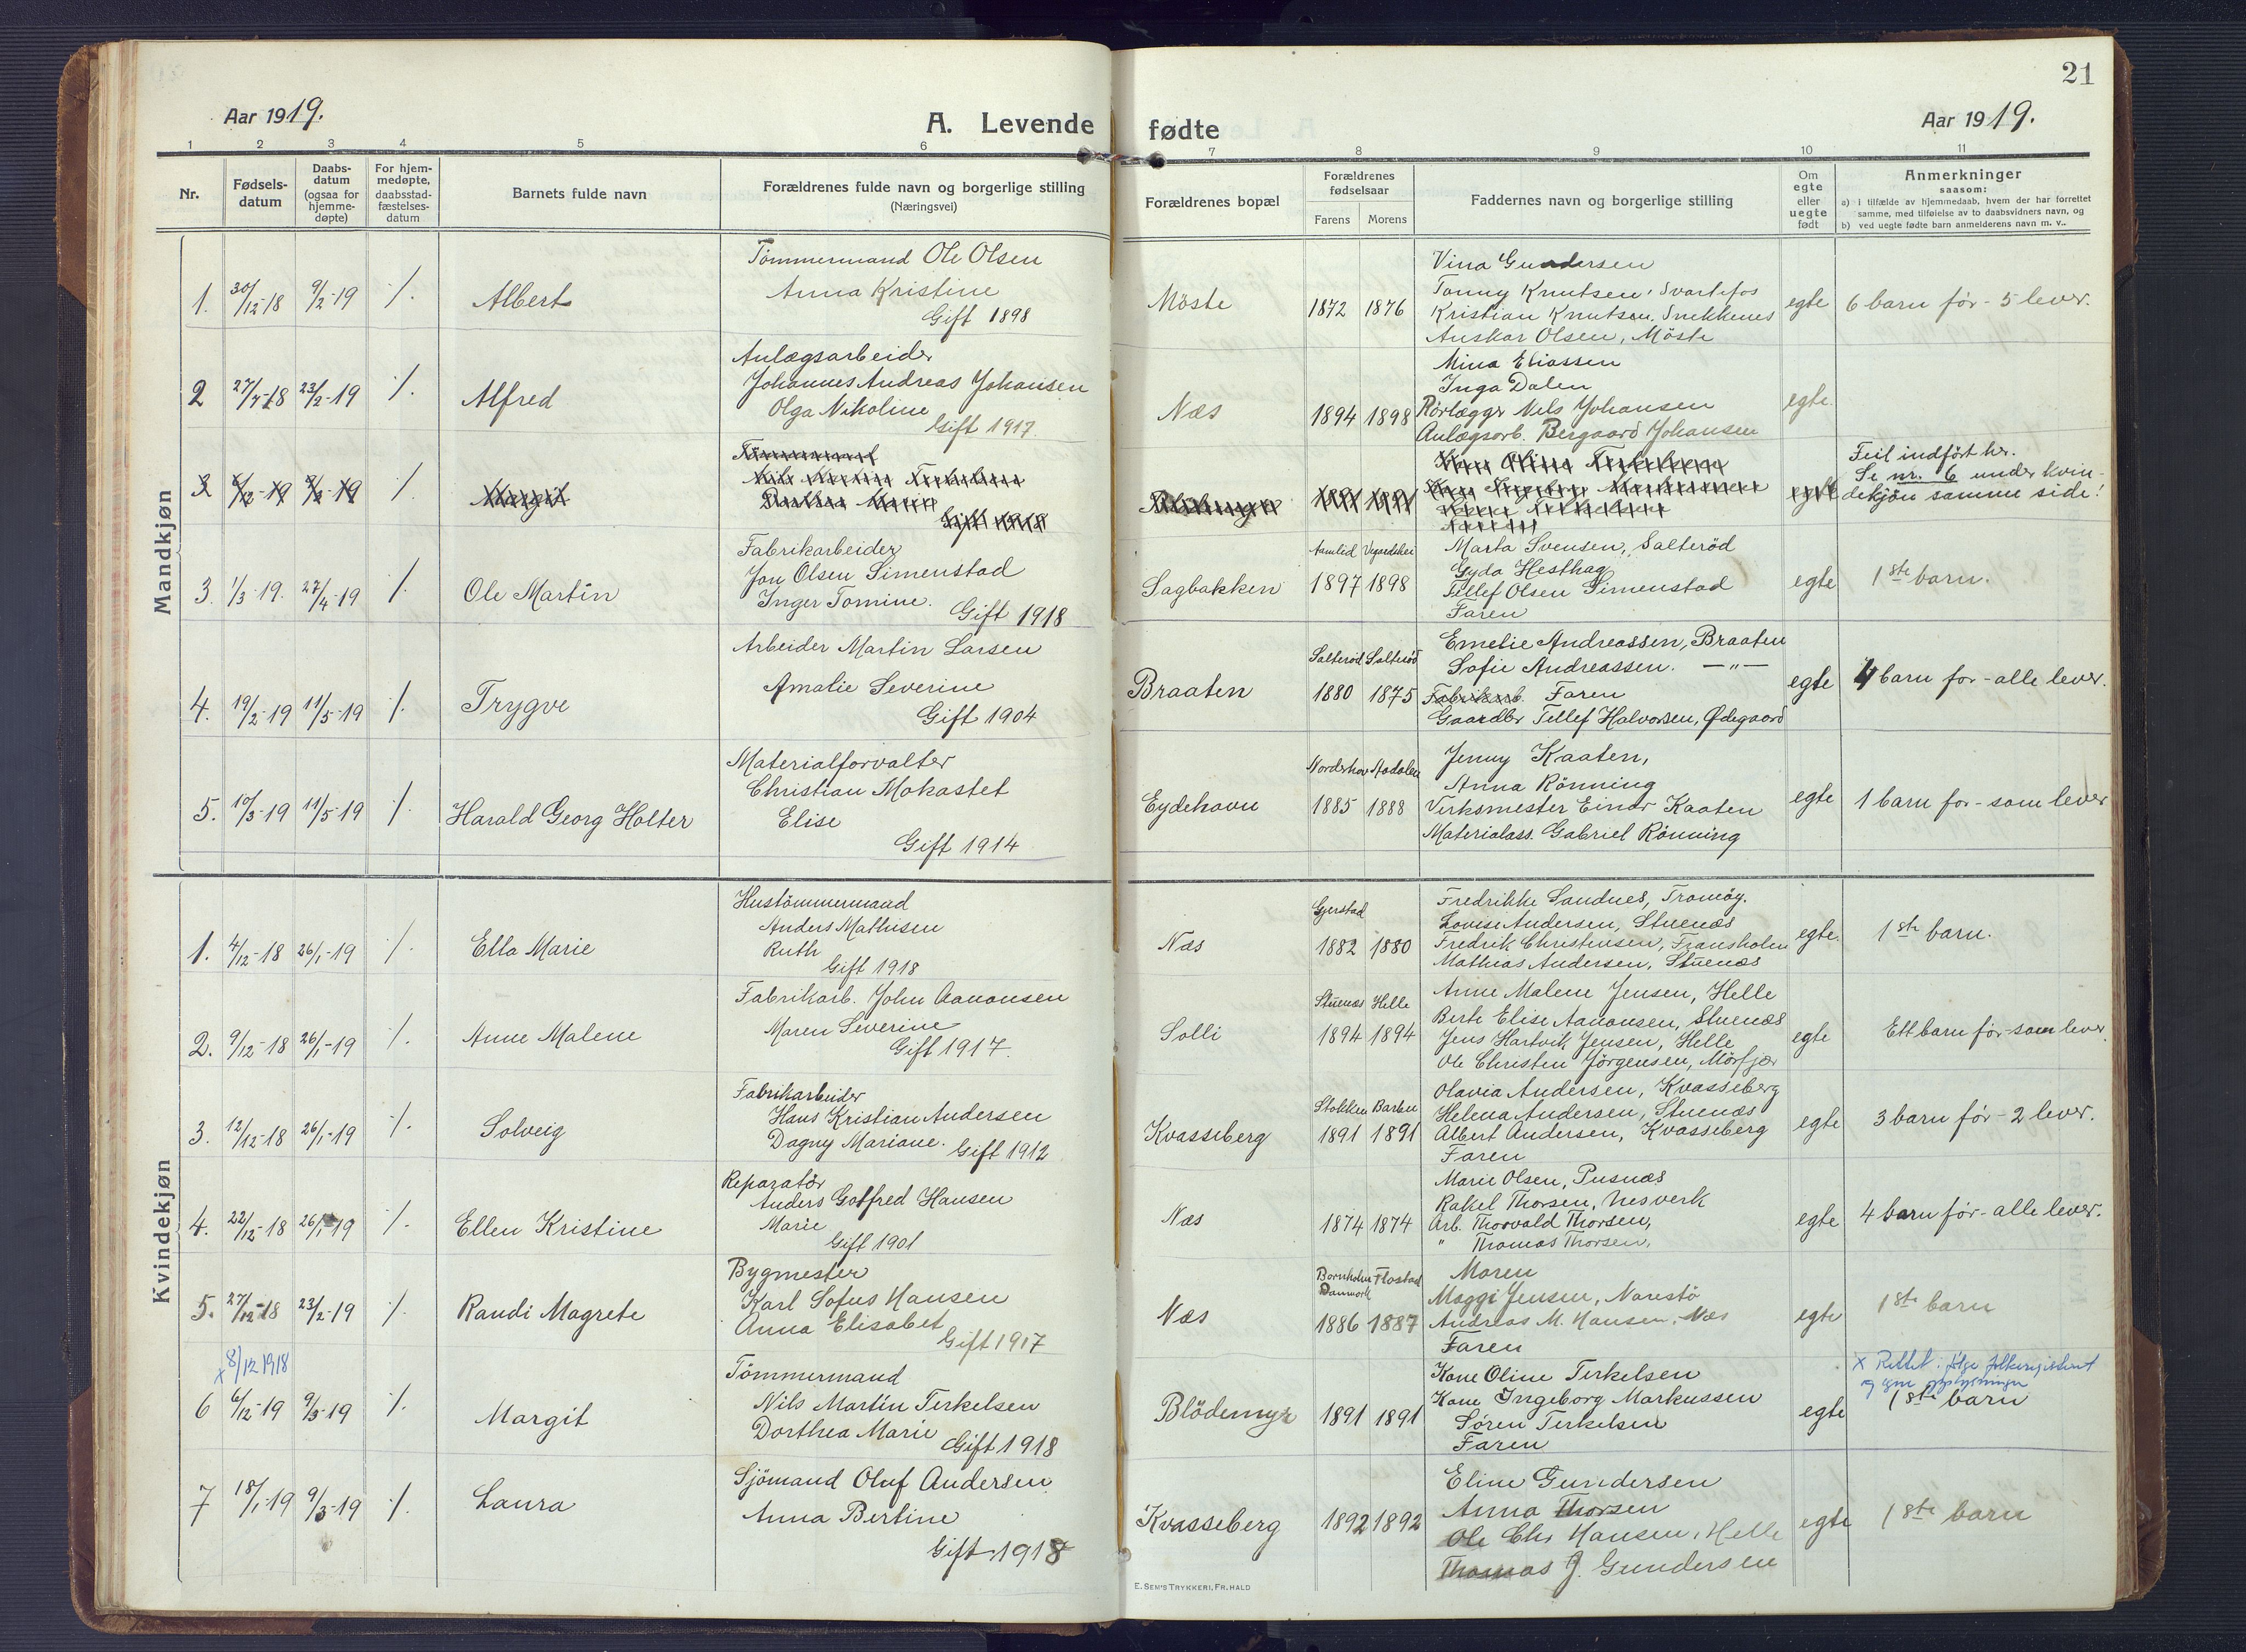 21
Aar 1919.
A. Levende fødte
Aar 1919.
1 2 3 4 5 6 7 8 9 10 11
Nr.
Fødsels-
datum
Daabs-
datum
(ogsaa for
hjemme-
døpte)
For hjem-
medøpte,
daabsstad-
fæstelses-
datum
Barnets fulde navn
Forældrenes fulde navn og borgerlige stilling
(Næringsvei)
Forældrenes bopæl
Forældrenes
fødselsaar
Farens Morens
Faddernes navn og borgerlige stilling
Om
egte
eller
uegte
født
Anmerkninger
saasom:
a) i tilfælde av hjemmedaab, hvem der har forrettet
samme, med tilføielse av to daabsvidners navn, og
b) ved uegte fødte barn anmelderens navn m. v..
Mandkjøn
1. 30/12-18 9/2-19 ./. Albert
Tömmermand Ole Olsen
Anna Kristine
Gift 1898
Möste 1872 1876
Vina Gundersen
Tonny Knutsen, Svartefos
Kristian Knutsen, Snekkenes
Anskar Olsen, Möste
egte 6 barn før - 5 lever.
2 27/7-18 23/2-19 ./. Alfred
Anlægsarbeider
Johannes Andreas Johansen
Olga Nikoline
Gift 1917.
Næs 1894 1898
Mina Eliassen
Inga Dalen
Rörlægger Nils Johansen
Anlægsarb. Bergaard Johansen
egte.
3 6/12-19 9/3-19 ./. Margit
Tömmermand
Nils Martin Terkelsen
Dorthea Marie
Gift 1918
Blödemyr 1891 1891
Kone Oline Terkelsen
Kone Ingeborg Markussen
Søren Terkelsen
Faren
egte
Feil indført hr.
Se nr. 6 under kvin-
dekjön samme side!
3. 1/3-19. 27/4-19 ./. Ole Martin
Fabrikarbeider
Jon Olsen Simenstad
Inger Tomine. Gift 1918
Sagbakken
Aamlid Vegardshei
1897 1898
Marta Svensen, Salteröd
Gyda Hesthag
Tellef Olsen Simenstad
Faren
egte 1ste barn.
4. 19/2-19 11/5-19 ./. Trygve
Arbeider Martin Larsen
Amalie Severine
Gift 1904
Braaten
Salteröd Salteröd
1880 1875
Emelie Andreassen, Braaten
Sofie Andreassen. —"—
Fabrikarb. Faren
Gaardbr Tellef Halvorsen, Ødegaard
egte 4 barn før - alle lever.
5. 10/3-19 11/5-19 ./. Harald Georg Holter
Materialforvalter
Christian Mokastet
Elise
Gift 1914
Eydehavn
Norderhov Aadalen
1885 1888
Jenny Kaaten,
Anna Rönning
Verksmester Einar Kaaten
Materialass. Gabriel Rönning
egte 1 barn før - som lever
Kvindekjøn
1. 4/12-18 26/1-19 ./. Ella Marie
Hustömmermand
Anders Mathisen
Ruth
Gift 1918
Næs
Gjerstad
1882 1880
Fredrikke Sandnes, Tromöy.
Lovise Andersen, Stuenæs
Fredrik Christensen, Fransholen
Mathias Andersen, Stuenæs
egte. 1ste barn.
2. 9/12-18 26/1-19 ./. Anne Malene
Fabrikarb. John Aanonsen
Maren Severine
Gift 1917.
Solli
Stuenæs Helle
1894 1894
Anne Malene Jensen, Helle
Berte Elise Aanonsen, Stuenæs
Jens Hartvik Jensen, Helle
Ole Christen Jörgensen, Mörfjær
egte Ett barn før - som lever.
3. 12/12-18 26/1-19 ./. Solveig
Fabrikarbeider
Hans Kristian Andersen
Dagny Mariane. Gift 1912
Kvasseberg
Stokken Barbu
1891 1891
Olavia Andersen, Kvasseberg
Helena Andersen, Stuenæs
Albert Andersen, Kvasseberg
Faren
egte 3 barn før - 2 lever.
4. 22/12-18 26/1-19 ./. Ellen Kristine
Reparatör
Anders Gotfred Hansen
Marie
Gift 1901
Næs 1874 1874
Marie Olsen, Pusnæs
Rakel Thorsen, Nesverk
Arb. Thorvald Thorsen,
" Thomas Thorsen,
egte 4 barn før - alle lever.
5. 27/12-18 23/2-19 ./. Randi Magrete
Bygmester
Karl Sofus Hansen
Anna Elisabet
Gift 1917
Næs
Bornholm Flostad
Danmark
1886 1887
Maren
Maggi Jensen, Narestö
Andreas M. Hansen, Næs
Faren
egte 1ste barn
x 8/12 1918
6 6/12-19 9/3-19 ./. Margit
Tömmermand
Nils Martin Terkelsen
Dorthea Marie
Gift 1918
Blödemyr 1891 1891
Kone Oline Terkelsen
Kone Ingeborg Markussen
Søren Terkelsen
Faren
egte
x Rettet i følge folkeregisteret
og egne opplysninger
1ste barn
7 18/1-19 9/3-19 ./. Laura
Sjömand Oluf Andersen
Anna Bertine
Gift 1918
Kvasseberg 1892 1892
Eline Gundersen
Anna Thorsen
Ole Chr Hansen, Helle
Thomas J. Gundersen
egte 1ste barn
E. SEM'S TRYKKERI, FR.HALD